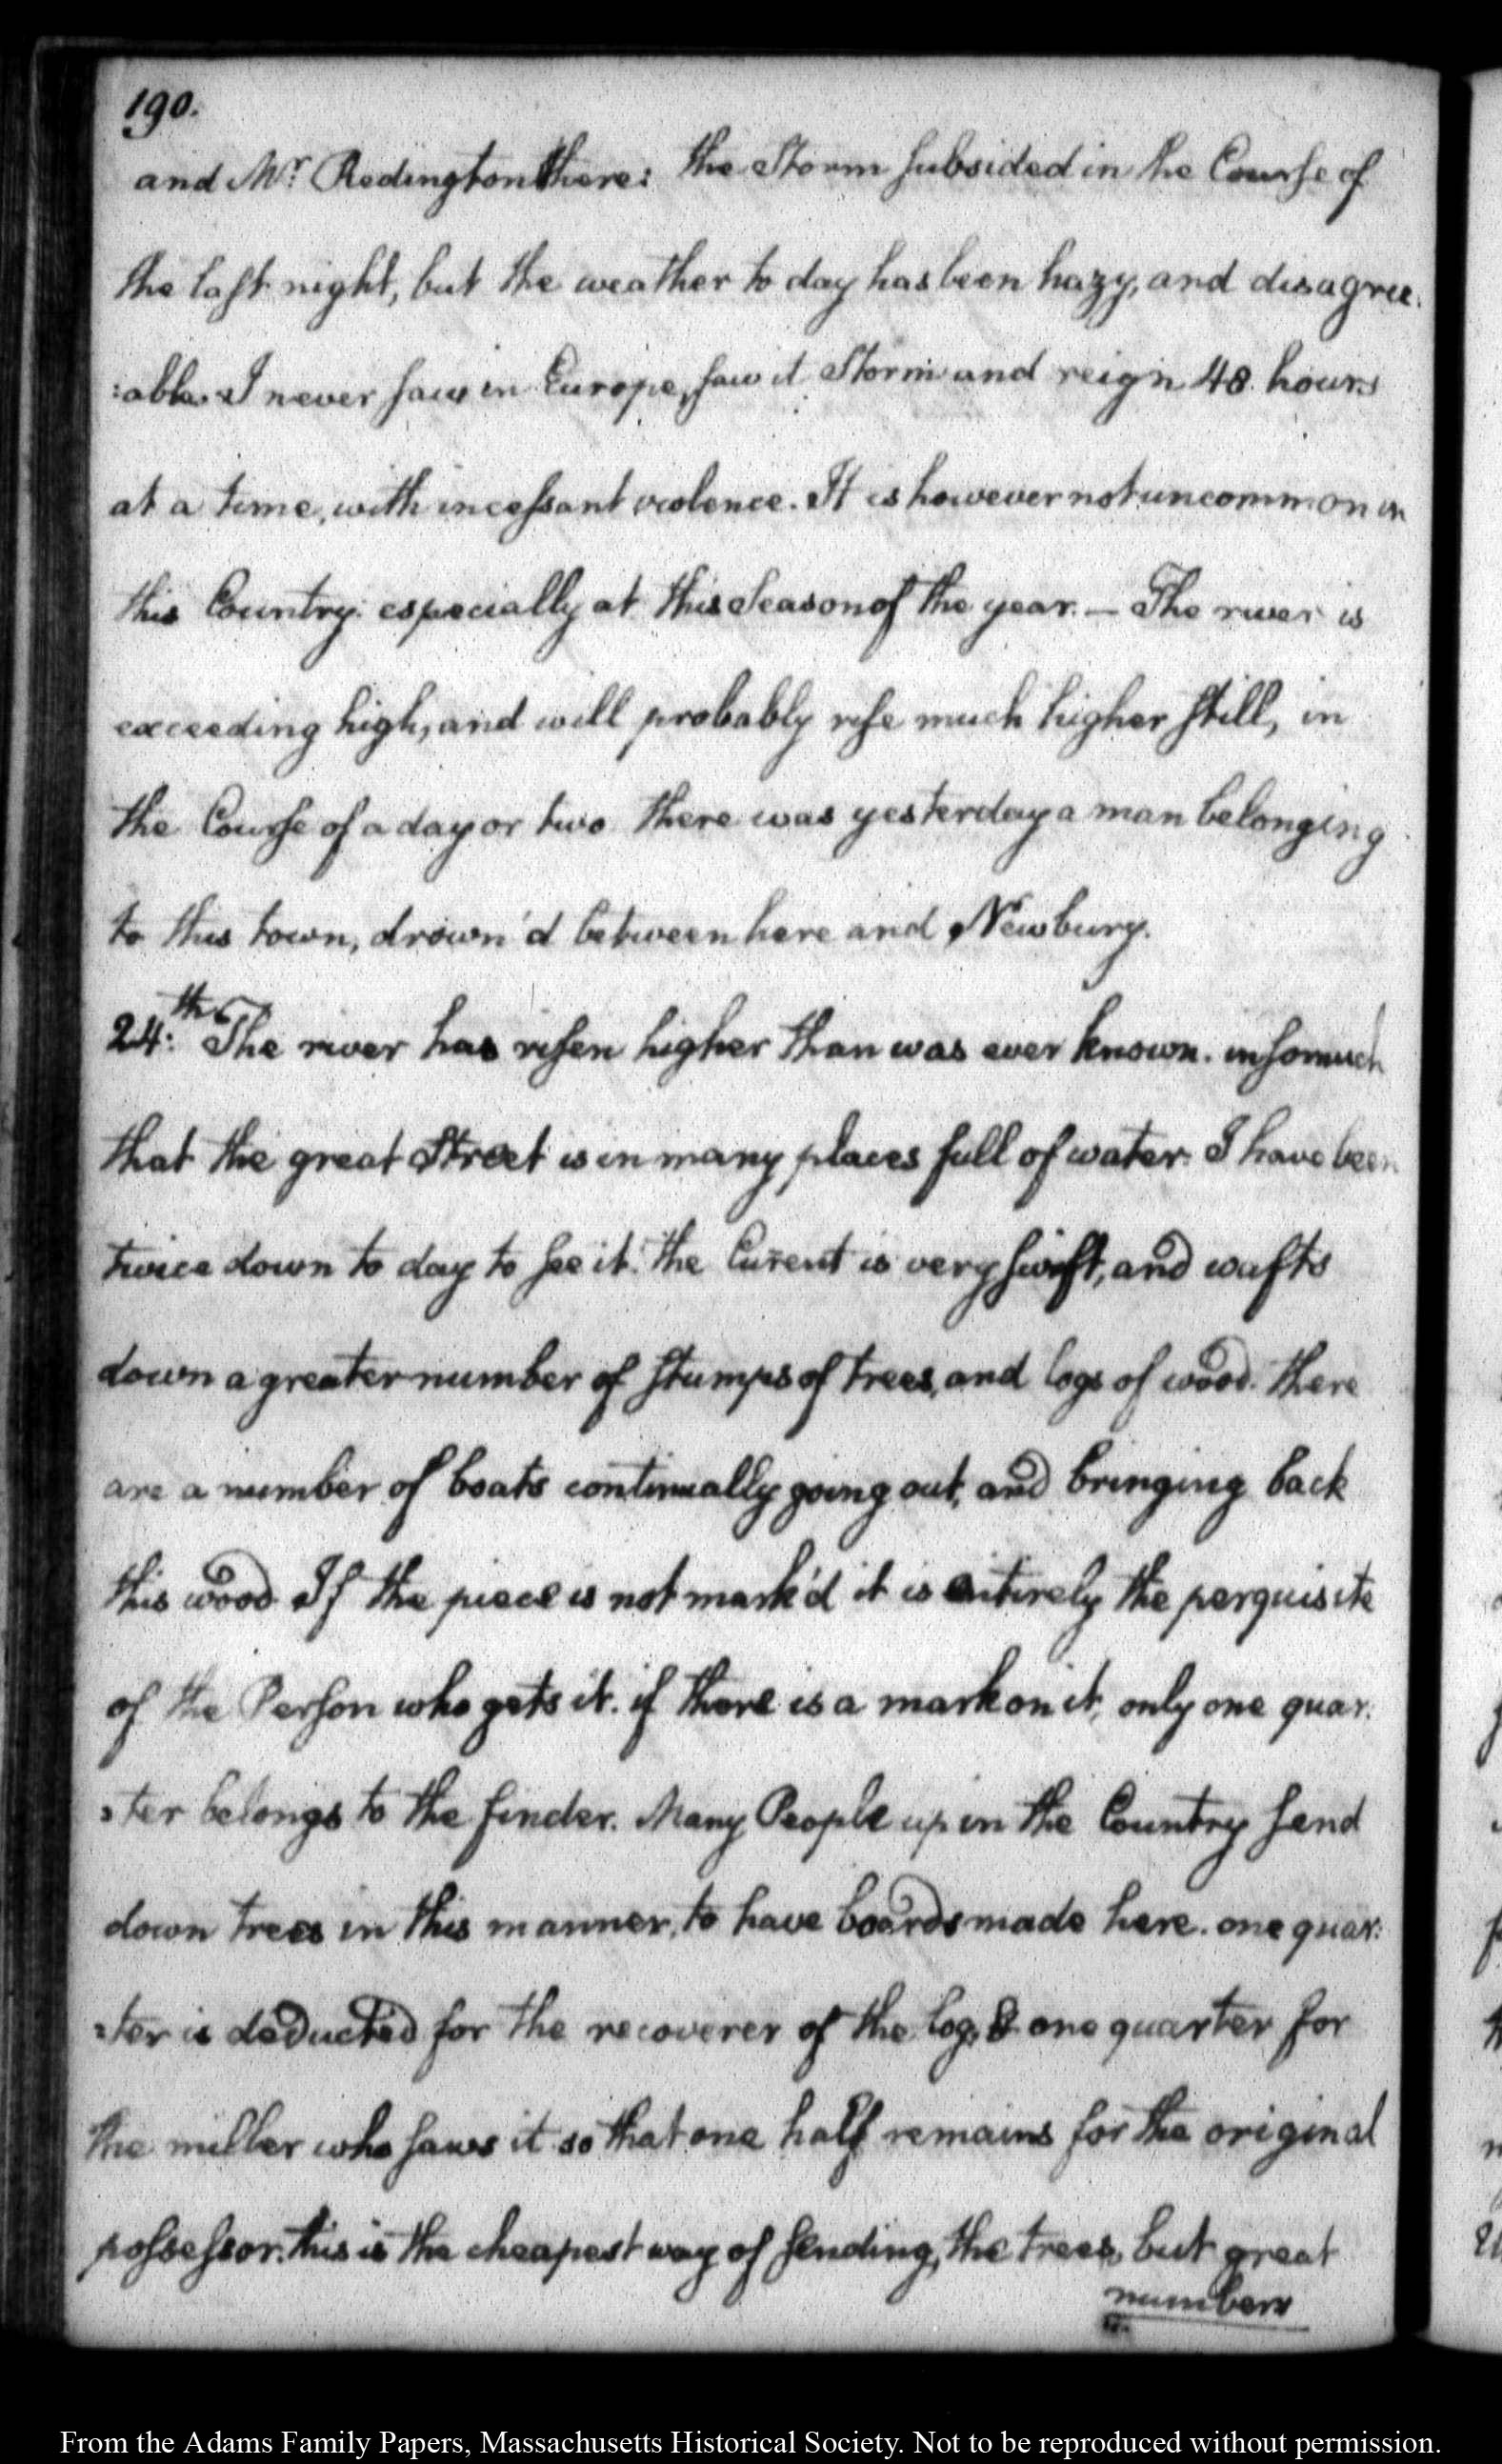 190.
and Mr. Redington there: the Storm subsided in the Course of
the last night, but the weather to day has been hazy, and disagree:
:able. I never saw in Europe, saw it Storm and reign 48 hours
at a time, with incessant violence. It is however not uncommon in
this Country: especially at this Season of the year. — The river is
exceeding high, and will probably rise much higher still, in
the Course of a day or two there was yesterday a man belonging
to this town, drown'd between here and Newbury.
24:th The river has risen higher than was ever known. insomuch
that the great Street is in many places full of water. I have been
twice down to day to see it. the Curent is very swift, and wafts
down a greater number of stumps of trees, and logs of wood. there
are a number of boats continually going out, and bringing back
this wood. If the piece is not mark'd it is entirely the perquisite
of the Person who gets it. if there is a mark on it, only one quar:
:ter belongs to the finder. Many People up in the Country send
down trees in this manner, to have boards made here. one quar:
:ter is deducted for the recoverer of the log, & one quarter for
the miller who saws it so that one half remains for the original
possessor. this is the cheapest way of sending, the trees, but great
numbers
From the Adams Family Papers, Massachusetts Historical Society. Not to be reproduced without permission.